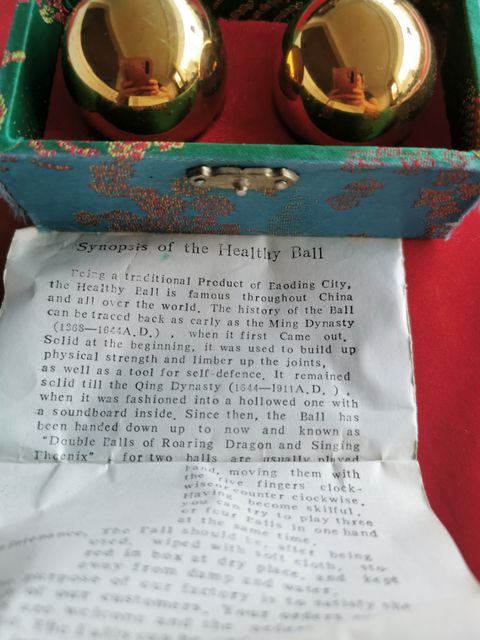 Synopsis of the Healthy Ball
Being a traditional Product of Eaoding City,
the Healthy Ball is famous throughout China
and all over the world. The history of the Ball
can be traced back as early as the Ming Dynasty
(1368—1644A.D.) , when it first Came out.
Solid at the beginning, it was used to build up
physical strength and limber up the joints,
as well as a tool for self-defence. It remained
solid till the Qing Dynasty (1644—1911A.D. ) ,
when it was fashioned into a hollowed one with
a soundboard inside. Since then, the Ball has
been handed down up to now and known as
"Double Balls of Roaring Dragon and Singing
Phoenix" , for two balls are usually played
hand, moving them with
the five fingers clock-
wise or counter clockwise.
Having become skilful,
you can try to play three
or four Balls in one hand
at the same time.
The Ball should be, after being
used, wiped with soft cloth,
in box at dry place, and kept
away from damp and water.
purpose of our factory is to satisfy the
of our customers. Your orders
welcome and the